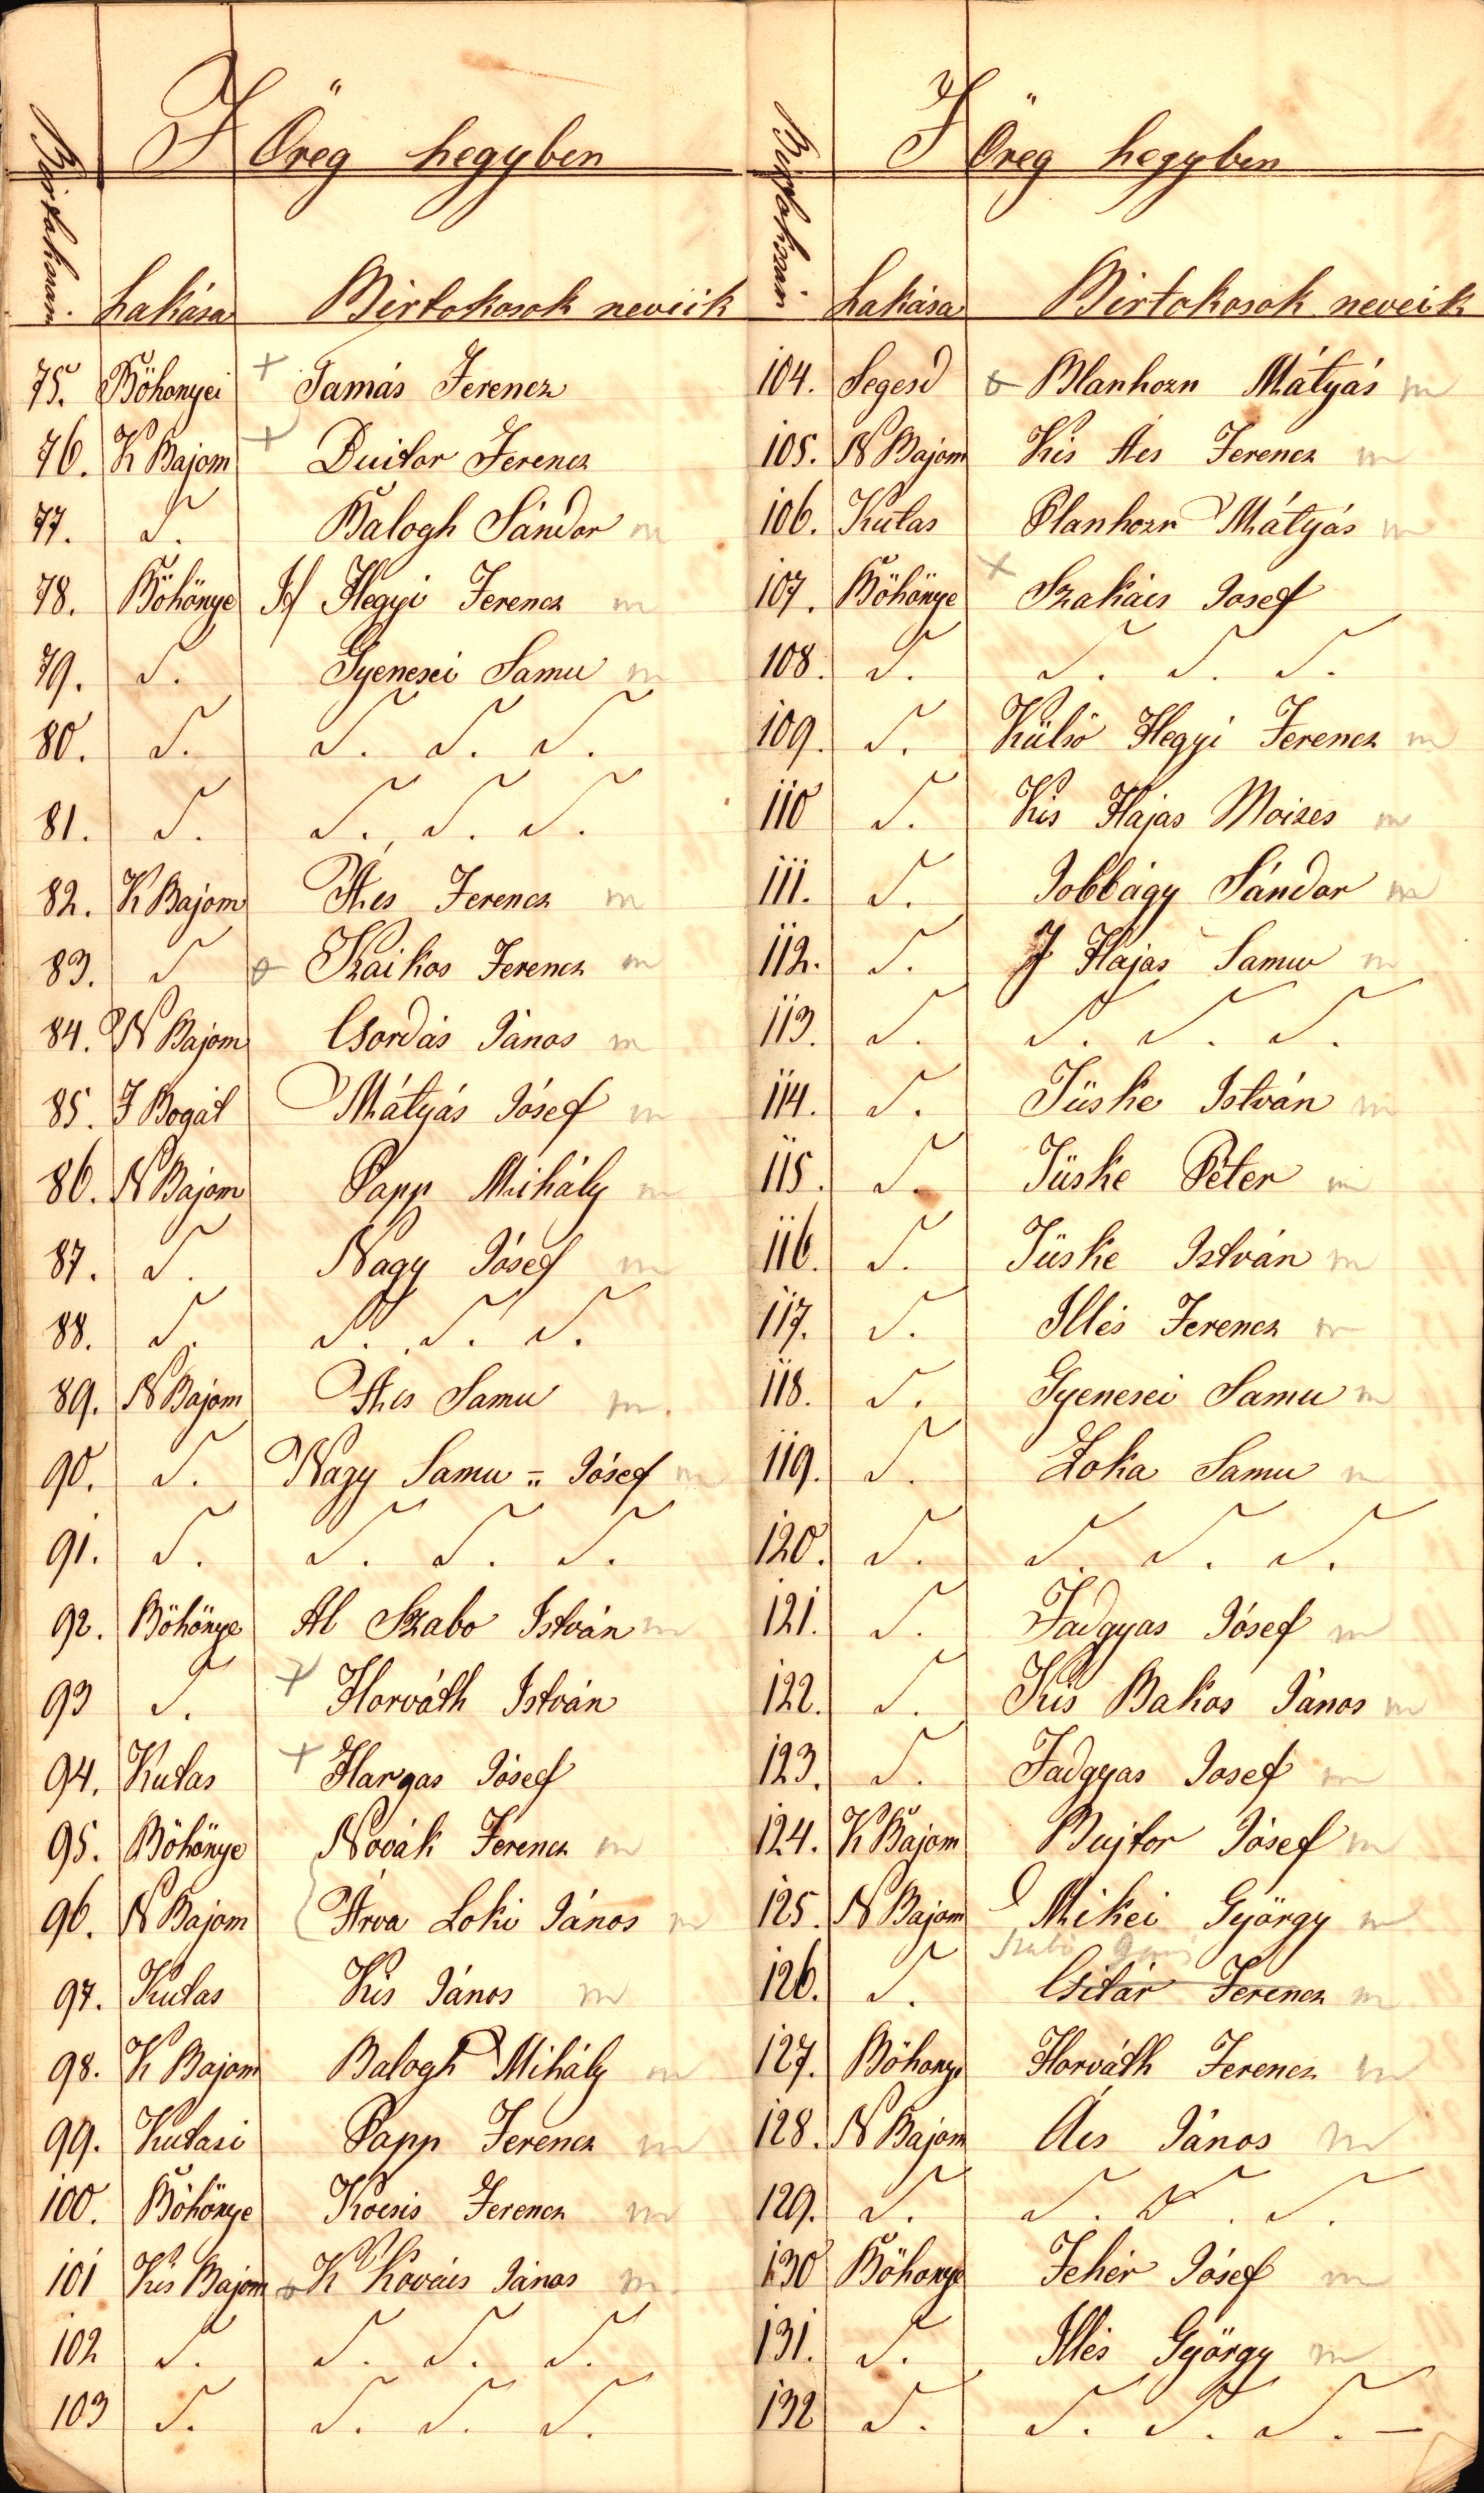 Birtokszám. I Öreg hegyben
Lakása Birtokosok neviik
75. Böhonyei + Tamás Ferencz
76. K Bajom + Buitor Ferencz
77. S. Balogh Sándor m
78. Böhönye If Hegyi Ferencz m
79. S. Gyenesei Samu m
80. S. S. S. S.
81. S. S. S. S.
82. K Bajom Ács Ferencz m
83. S Szaikos Ferencz m
84. N Bajom Csordás János m
85. F Bogát Mátyás Jósef m
86. N Bajom Papp Mihály m
87. S. Nagy Jósef m
88. S. S. S. S.
89. N Bajom Ács Samu m.
90. S. Nagy Samu = Jósef m
91. S. S. S. S.
92. Böhönye Al Szabo István m
93 S. + Horváth István
94. Kutas + Hargas Jósef
95. Böhönye Novák Ferencz m
96. N Bajom Árva Loki János m
97. Kutas Kis János m
98. K Bajom Balogh Mihály m
99. Kutasi Papp Ferencz m
100. Böhönye Kocsis Ferencz m
101 Kis Bajom K Kovács János m.
102 S. S. S. S.
103 S. S. S. S.
Birtokszám I Öreg hegyben
Lakása Birtokosok neveik
104. Segesd Blanhozn Mátyás m
105. N Bajom Kis Ács Ferencz m
106. Kutas Planhozn Mátyás m
107. Böhönye + Szakács Josef
108. S. S. S. S.
109. S. Külső Hegyi Ferencz m
110 S. Kis Hajas Moises m
111. S. Jobbágy Sándor m
112. S. I Hajas Samu m
113. S. S. S. S.
114. S. Tüske István m
115. S. Tüske Péter m
116. S. Tüske István m
117. S. Illés Ferencz m
118. S. Gyenesei Samu m
119. S. Zoka Samu m
120. S. S. S. S.
121. S. Fadgyas Jósef m
122. S. Kis Bakos János m
123. S. Fadgyas Josef m
124. K Bajom Bujtor Jósef m
125. N Bajom Mikei György m
Szabó
126. S. Csitár Ferencz m
127. Böhonye Horváth Ferencz m
128. N Bajom Ács János m
129. S. S. S. S.
130 Böhonye Fehér Jósef m
131. S. Illés György m
132 S. S. S. S. —